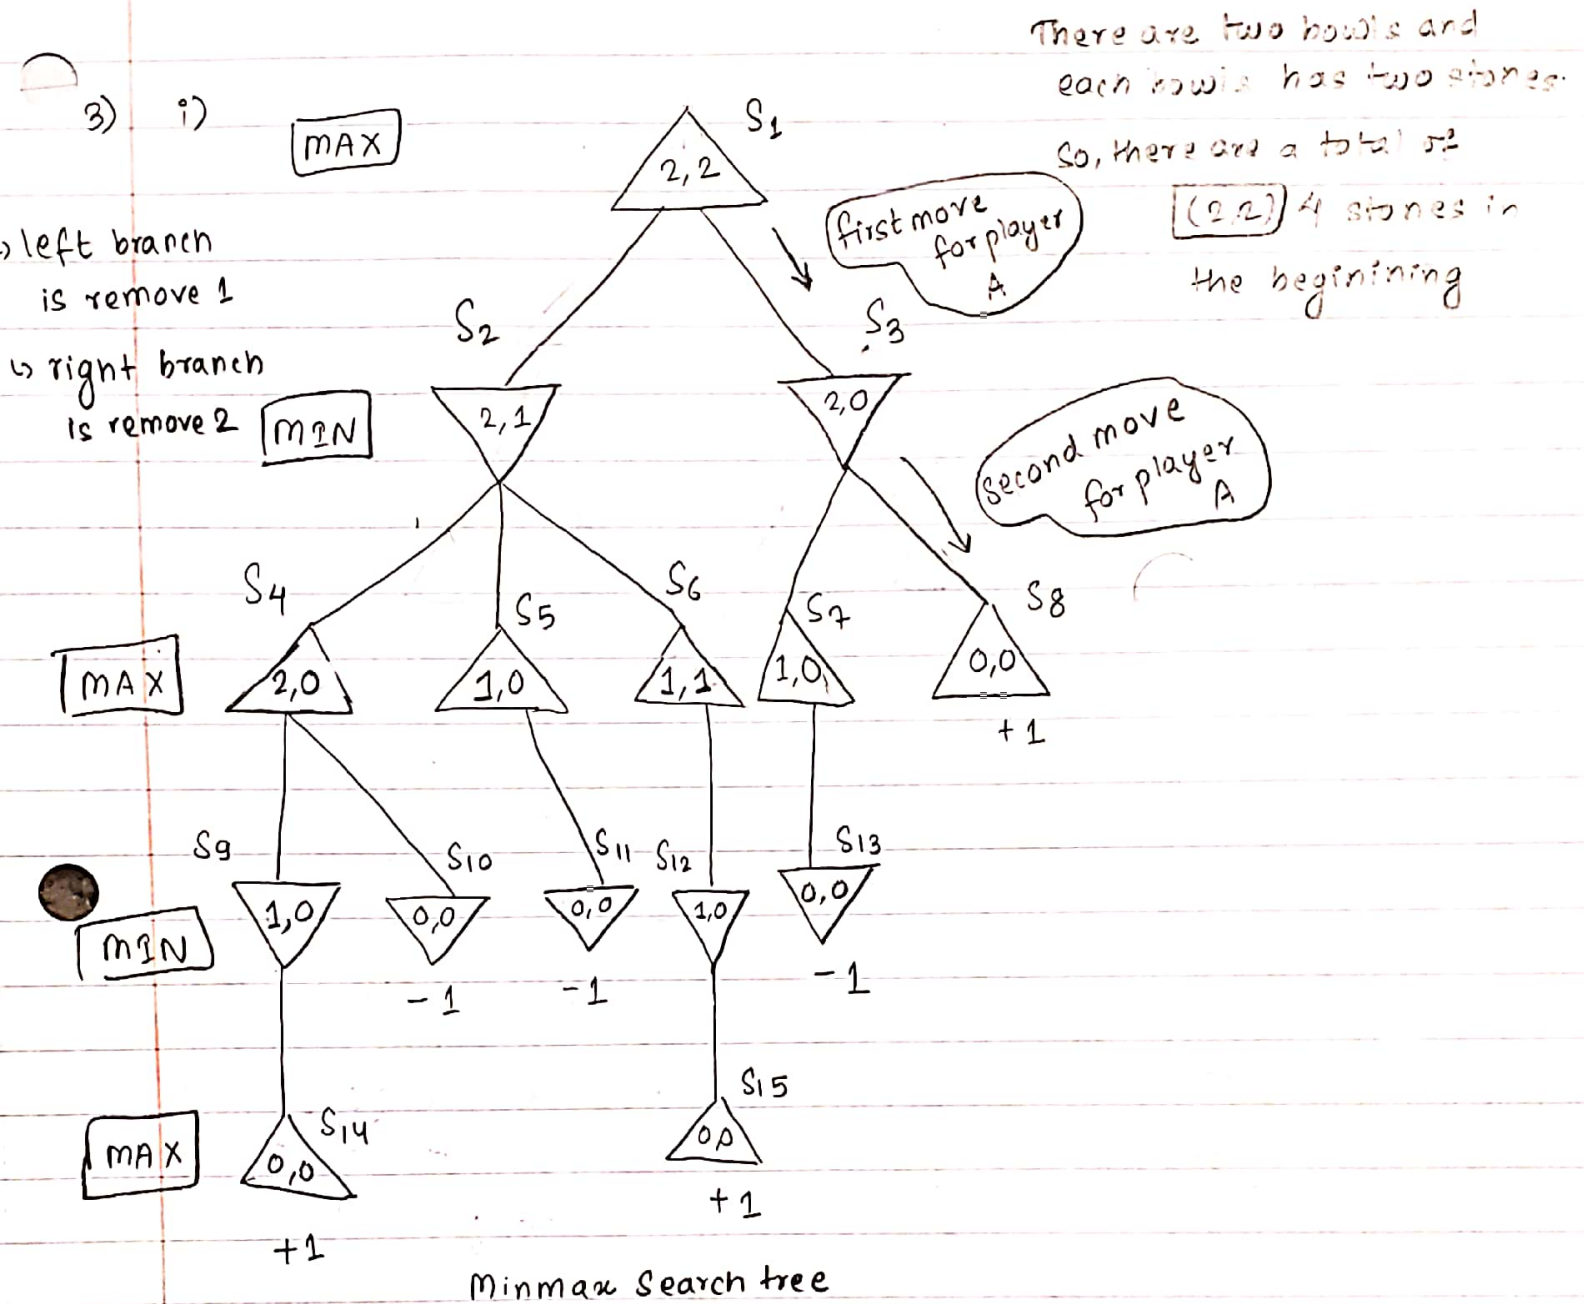 There are two bowls and
each bowls has two stones.
So, there are a total of
(2,2) 4 stones in
the beginining
3) i)
MAX
S1
2,2
first move
for player
A
left branch
is remove 1
right branch
is remove 2
MIN
S2
2,1
S3
2,0
second move
for player
A
MAX
S4
2,0
S5
1,0
S6
1,1
S7
1,0
S8
0,0
+1
MIN
S9
1,0
S10
0,0
-1
S11
0,0
-1
S12
1,0
S13
0,0
-1
MAX
S14
0,0
+1
S15
0,0
+1
Minmax Search tree